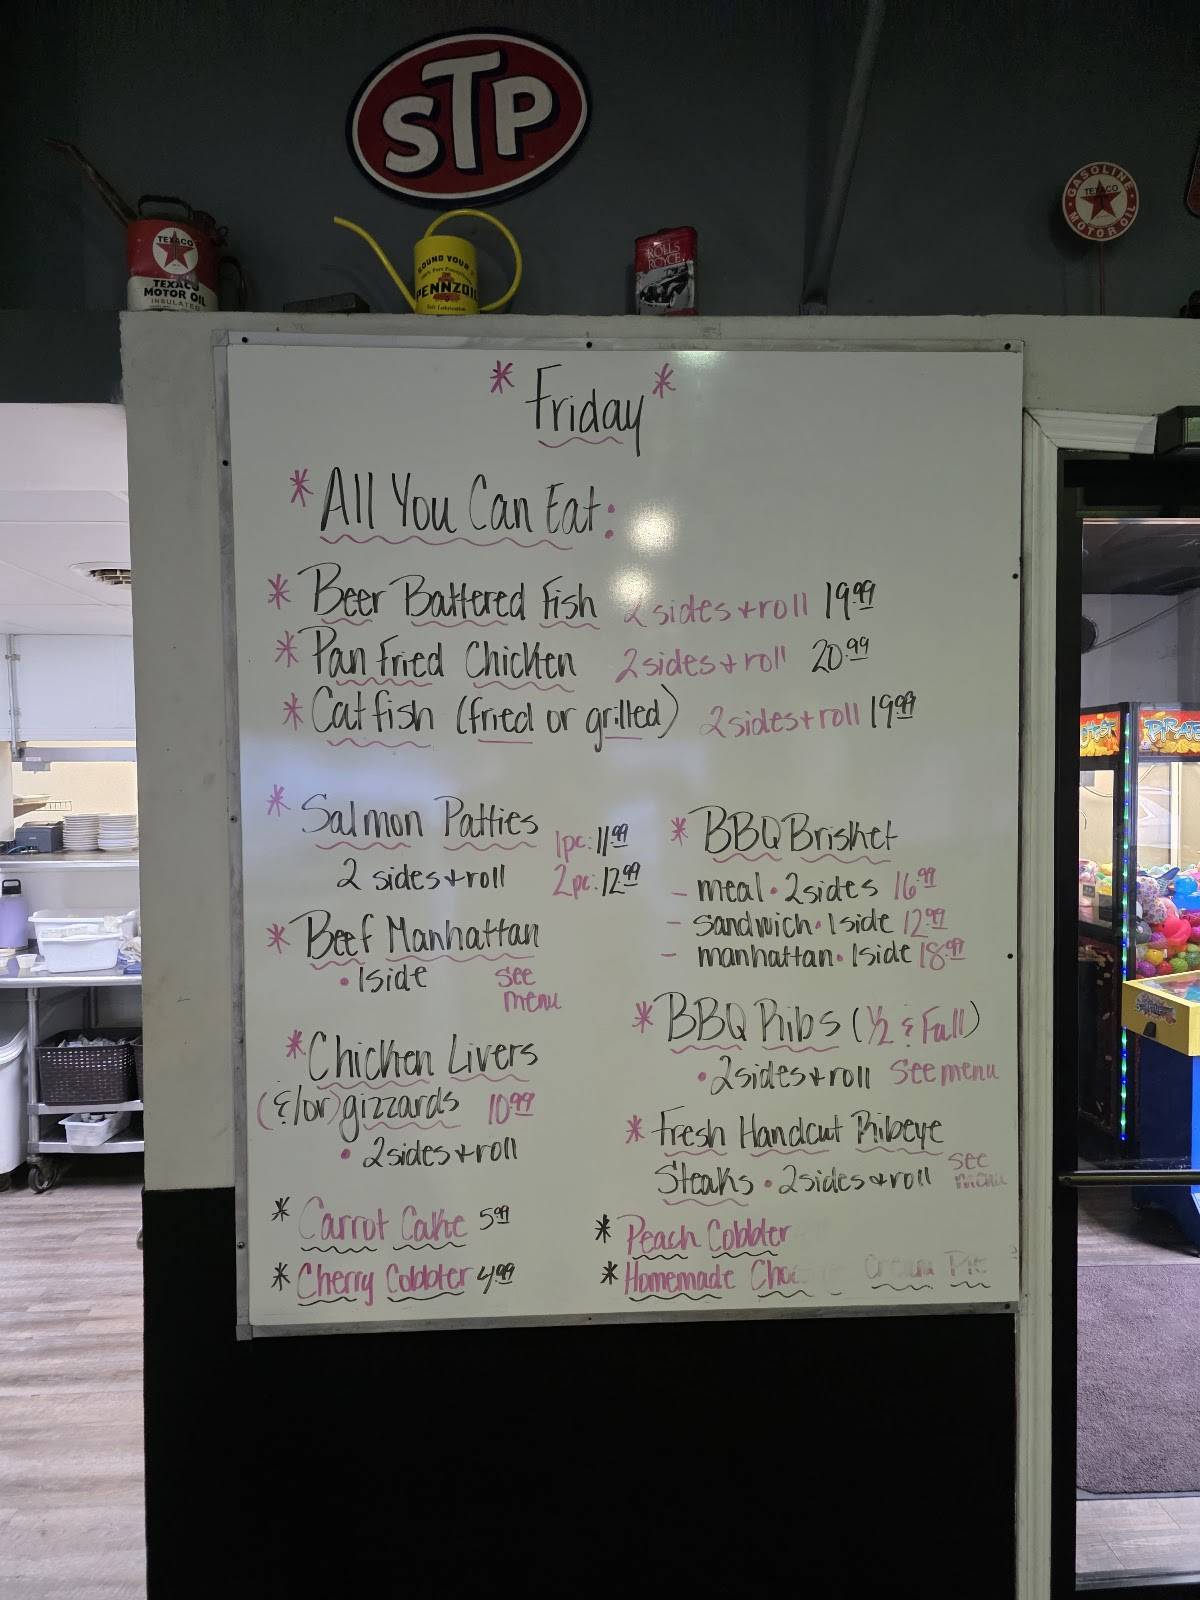 STP
TEXACO
TEXACO
MOTOR OIL
INSULATED
SOUND YOUR Z
100% Pure Pennsylvania
PENNZOIL
Safe Lubrication
ROLLS
ROYCE
GASOLINE
TEXACO
MOTOR OIL
* Friday *
* All You Can Eat:
* Beer Battered Fish 2 sides + roll 19.99
* Pan Fried Chicken 2 sides + roll 20.99
* Catfish (fried or grilled) 2 sides + roll 19.99
* Salmon Patties 1pc: 11.99
2 sides + roll 2pc: 12.99
* Beef Manhattan
• 1 side see
menu
* Chicken Livers
(&/or) gizzards 10.99
• 2 sides + roll
* BBQ Brisket
- meal • 2 sides 16.99
- sandwich • 1 side 12.99
- manhattan • 1 side 18.99
* BBQ Ribs (1/2 & Full)
• 2 sides + roll See menu
* Fresh Handcut Ribeye
Steaks • 2 sides + roll see
menu
* Carrot Cake 5.99
* Cherry Cobbler 4.99
* Peach Cobbler
* Homemade Cream Pie
PIRATE